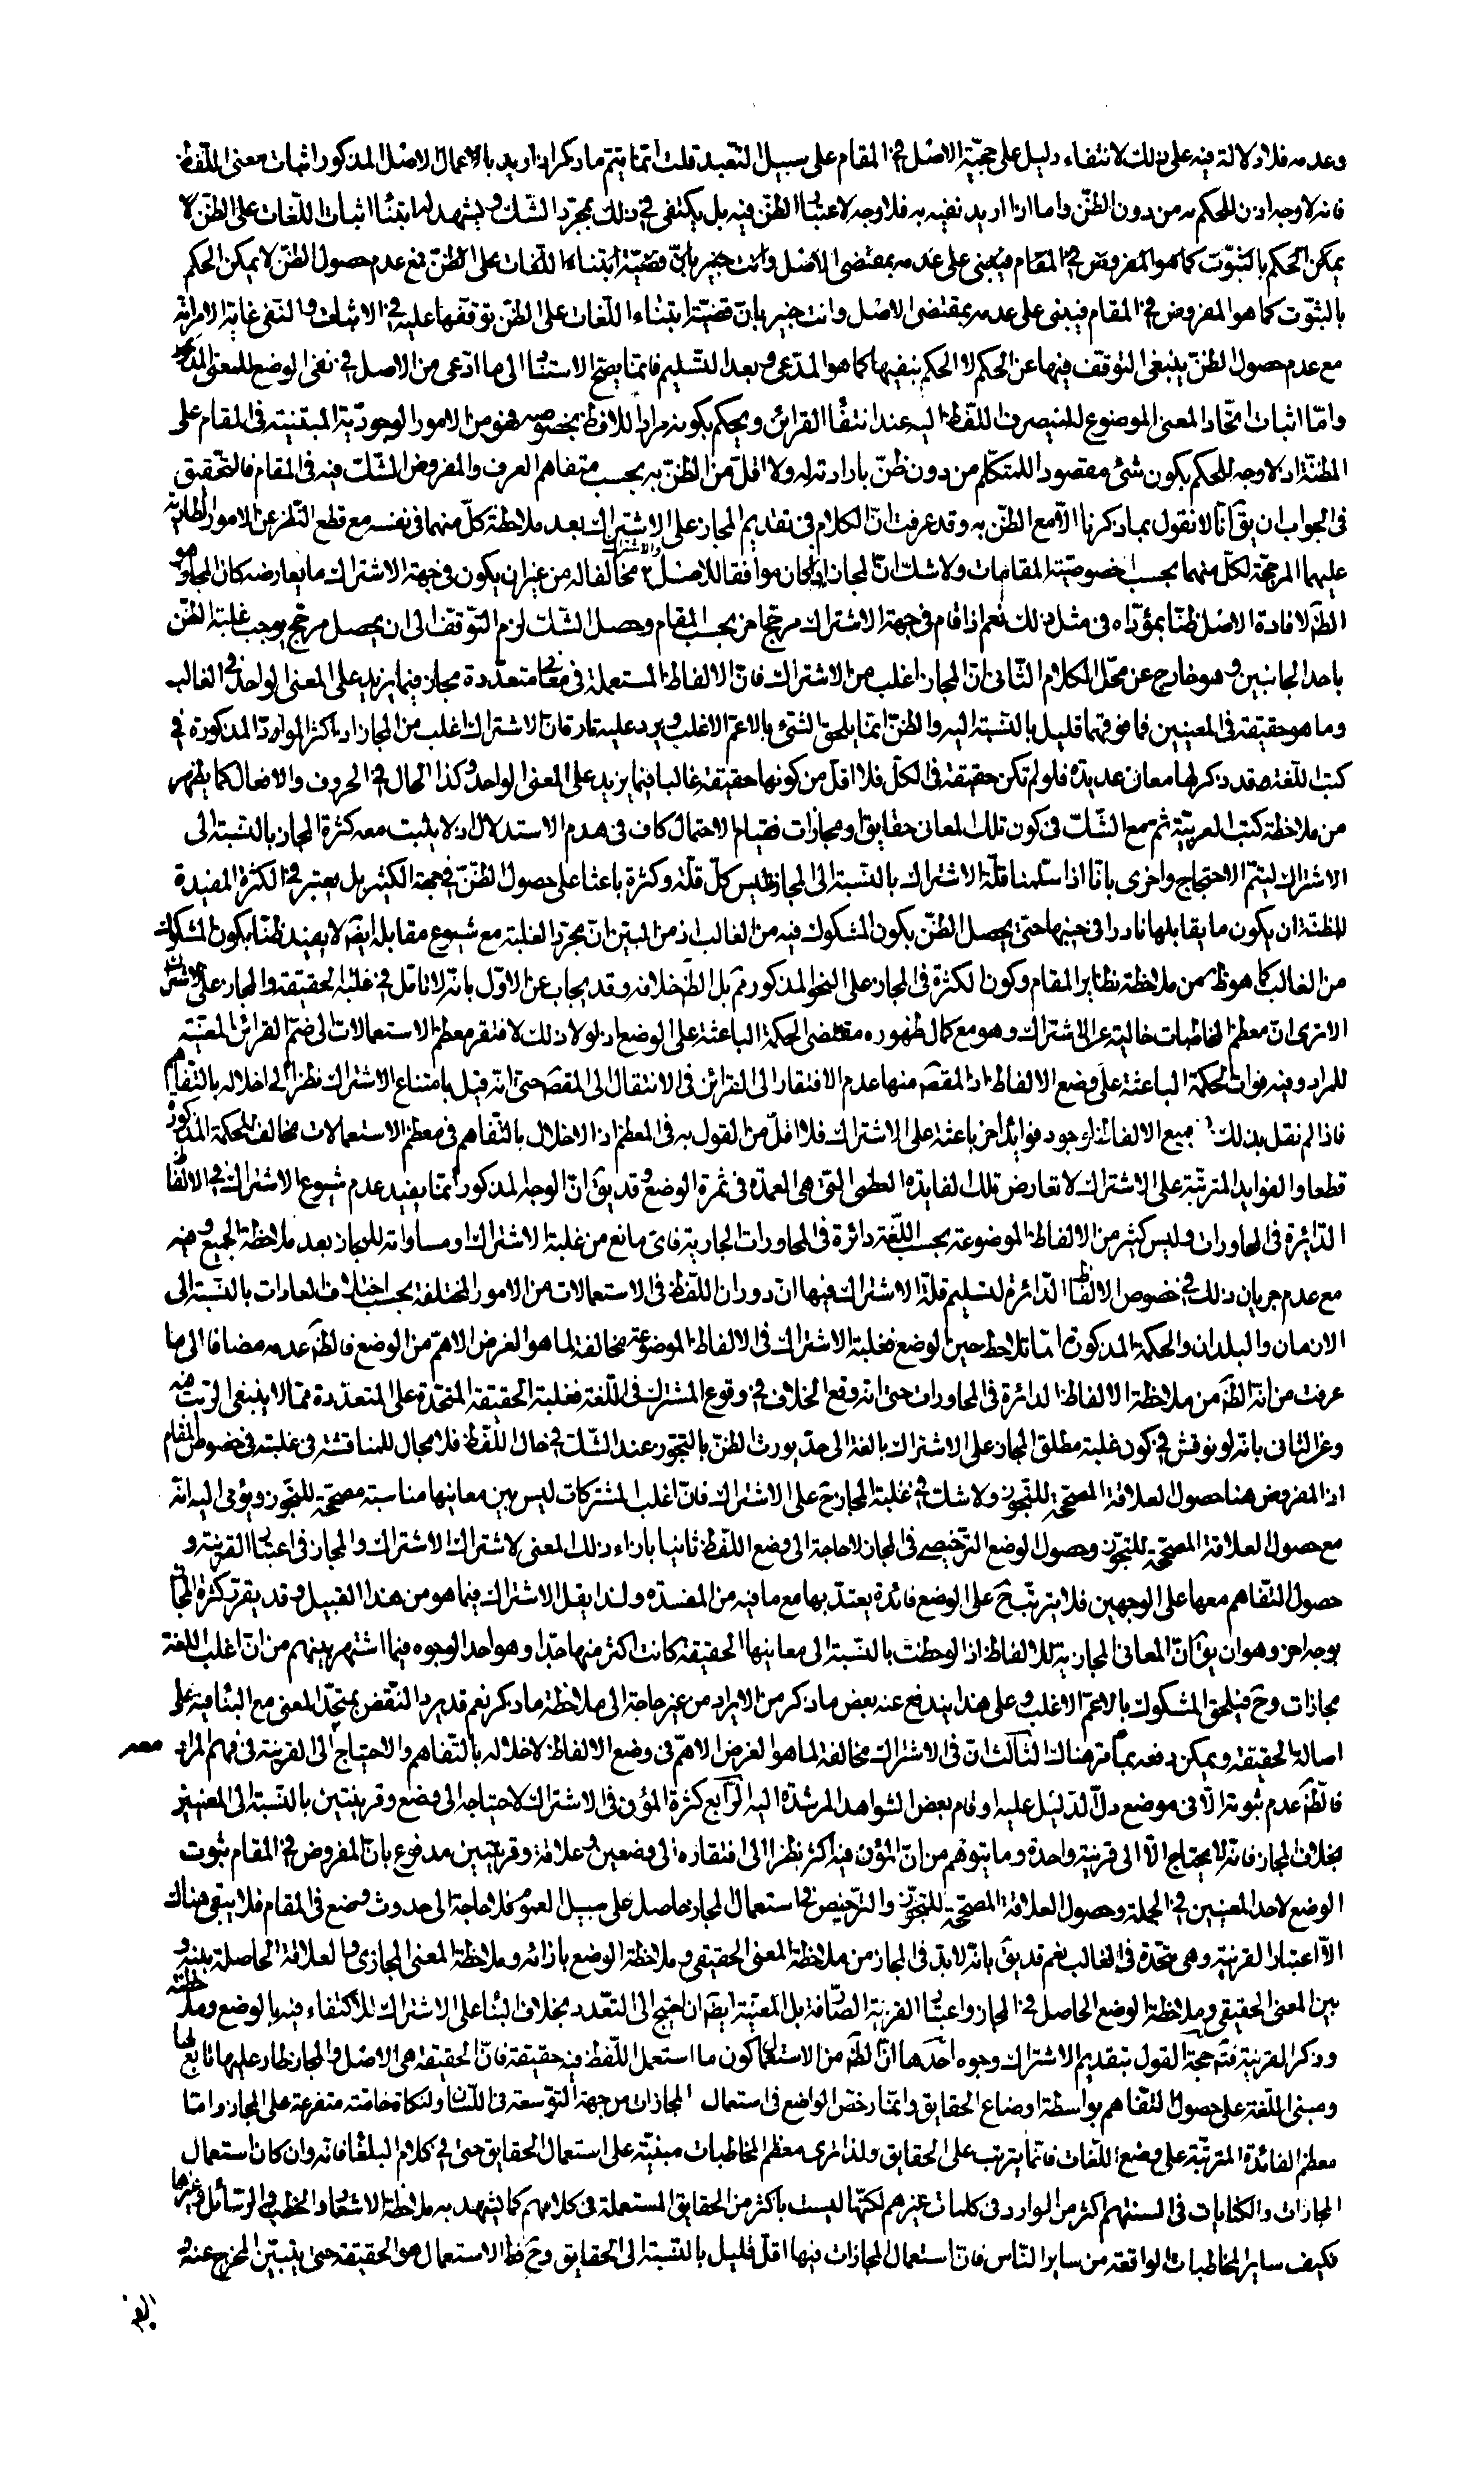 وعدمه فلا دلالة فيه على ذلك لانتفاء دليل على حجية الاصل في المقام على سبيل التعبد قلت انما يتم ما ذكر ان اريد باعمال الاصل المذكور اثبات معنى اللفظ
فانه لا وجه اذن للحكم به من دون الظن واما اذا اريد نفيه به فلا وجه لاعتبار الظن فيه بل يكتفى في ذلك بمجرد الشك ويشهد له ابتناء اثبات اللغات على الظن لا
يمكن الحكم بالثبوت كما هو المفروض في المقام فيبنى على عدمه بمقتضى الاصل وانت خبير بان قضية ابتناء اللغات على الظن فمع عدم حصول الظن لا يمكن الحكم
بالثبوت كما هو المفروض في المقام فيبنى على عدمه بمقتضى الاصل وانت خبير بان قضية ابتناء اللغات على الظن توقفها عليه في الاثبات والنفي غاية الامر انه
مع عدم حصول الظن ينبغي التوقف فيها عن الحكم لا الحكم بنفيها كما هو المدعى وبعد التسليم فانما يصح الاستناد الى ما ادعى من الاصل في نفي الوضع للمعنى المذكور
واما اثبات اتحاد المعنى الموضوع له لينصرف اللفظ اليه عند انتفاء القرائن ويحكم بكونه مرادا للافظ بخصوصه فهو من الامور الوجودية المبتنية في المقام على
المظنة اذ لا وجه للحكم بكون شئ مقصودا للمتكلم من دون ظن بارادته له ولا اقل من الظن به بحسب متفاهم العرف والمفروض الشك فيه في المقام فالتحقيق
في الجواب ان يق انا لا نقول بما ذكرنا الا مع الظن به وقد عرفت ان الكلام في تقديم المجاز على الاشتراك بعد ملاحظة كل منهما في نفسه مع قطع النظر عن الامور الطارية
عليهما المرجحة لكل منهما بحسب خصوصية المقامات ولا شك ان المجاز اذا كان موافقا للاصل والاشتراك مخالفا له من غير ان يكون في جهة الاشتراك ما يعارضه كان المجاز هو
الظ لافادة الاصل ظنا بمؤداه في مثل ذلك نعم اذا قام في جهة الاشتراك مرجح اخر بحسب المقام وحصل الشك لزم التوقف الى ان يحصل مرجح يوجب غلبة الظن
باحد الجانبين وهو خارج عن محل الكلام الثاني ان المجاز اغلب من الاشتراك فان الالفاظ المستعملة في معان متعددة مجاز فيما يزيد على المعنى الواحد في الغالب
وما هو حقيقة في المعنيين فما فوقهما قليل بالنسبة اليه والظن انما يلحق الشئ بالاعم الاغلب ويرد عليه تارة ان الاشتراك اغلب من المجاز اذ اكثر المواد المذكورة في
كتب اللغة قد ذكر لها معان عديدة فلو لم تكن حقيقة في الكل فلا اقل من كونها حقيقة غالبا فيما يزيد على المعنى الواحد وكذا الحال في الحروف والافعال كما يظهر
من ملاحظة كتب العربية ثم مع الشك في كون تلك المعاني حقايق او مجازات فقيام الاحتمال كاف في هدم الاستدلال اذ لا يثبت معه كثرة المجاز بالنسبة الى
الاشتراك ليتم الاحتجاج واخرى بانا اذا سلمنا قلة الاشتراك بالنسبة الى المجاز فليس كل قلة وكثرة باعثا على حصول الظن في جهة الكثير بل يعتبر في الكثرة المفيدة
للمظنة ان يكون ما يقابلها نادرا في جنبها حتى يحصل الظن بكون المشكوك فيه من الغالب اذ من البين ان مجرد الغلبة مع شيوع مقابله ايض لا يفيد ظنا بكون المشكوك
من الغالب كما هو ظ من ملاحظة نظاير المقام وكون الكثرة في المجاز على النحو المذكور مم بل الظ خلافه وقد يجاب عن الاول بانه لا تامل في غلبة الحقيقة والمجاز على الاشتراك
الا ترى ان معظم المخاطبات خالية عن الاشتراك وهو مع كمال ظهوره مقتضى الحكمة الباعثة على الوضع اذ لولا ذلك لافتقر معظم الاستعمالات الى ضم القرائن المعينة
للمراد وفيه فوات الحكمة الباعثة على وضع الالفاظ اذ المقص منها عدم الافتقار الى القرائن في الانتقال الى المقص حتى انه قيل بامتناع الاشتراك نظرا الى اخلاله بالتفاهم
فاذا لم نقل بذلك في جميع الالفاظ لوجود فوائد اخر باعثة على الاشتراك فلا اقل من القول به في المعظم اذ الاخلال بالتفاهم في معظم الاستعمالات مخالف للحكمة المذكورة
قطعا والفوايد المترتبة على الاشتراك لا تعارض تلك الفايدة العظمى التي هي العمدة في ثمرة الوضع وقد يق ان الوجه المذكور انما يفيد عدم شيوع الاشتراك في الالفاظ
الدائرة في المحاورات وليس كثير من الالفاظ الموضوعة بحسب اللغة دائرة في المحاورات الجارية فاي مانع من غلبة الاشتراك ومساواته للمجاز بعد ملاحظة الجميع وفيه
مع عدم جريان ذلك في خصوص الالفاظ الدائرة لتسليم قلة الاشتراك فيها ان دوران اللفظ في الاستعمالات من الامور المختلفة بحسب اختلاف العادات بالنسبة الى
الازمان والبلدان والحكمة المذكورة انما تلاحظ حين الوضع فغلبة الاشتراك في الالفاظ الموضوعة مخالفة لما هو الغرض الاهم من الوضع فالظ عدمه مضافا الى ما
عرفت من انه الظ من ملاحظة الالفاظ الدائرة في المحاورات حتى انه وقع الخلاف في وقوع المشترك في اللغة فغلبة الحقيقة المتحدة على المتعددة مما لا ينبغي الريب فيه
وعن الثاني بانه لو نوقش في كون غلبة مطلق المجاز على الاشتراك بالغة الى حد يورث الظن بالتجوز عند الشك في حال اللفظ فلا مجال للمناقشة في غلبته في خصوص المقام
اذ المفروض هنا حصول العلاقة المصححة للتجوز ولا شك في غلبة المجاز ح على الاشتراك فان اغلب المشتركات ليس بين معانيها مناسبة مصححة للتجوز ويؤمى اليه انه
مع حصول العلاقة المصححة للتجوز وحصول الوضع الترخيصي في المجاز لا حاجة الى وضع اللفظ ثانيا بازاء ذلك المعنى لاشتراك الاشتراك والمجاز في اعتبار القرينة و
حصول التفاهم معها على الوجهين فلا يترتب ح على الوضع فائدة يعتد بها مع ما فيه من المفسدة ولذا يقل الاشتراك فيما هو من هذا القبيل وقد يقرر كثرة المجاز
بوجه اخر وهو ان يق ان المعاني المجازية للالفاظ اذا لوحظت بالنسبة الى معانيها الحقيقة كانت اكثر منها جدا وهو احد الوجوه فيما اشتهر بينهم من ان اغلب اللغة
مجازات وح فيلحق المشكوك بالاعم الاغلب وعلى هذا يندفع عنه بعض ما ذكر من الايراد من غير حاجة الى ملاحظة ما ذكر نعم قد يرد النقض بمتحد المعنى مع البناء فيه على
اصالة الحقيقة ويمكن دفعه بما مر هناك الثالث ان في الاشتراك مخالفة لما هو الغرض الاهم في وضع الالفاظ لاخلاله بالتفاهم والاحتياج الى القرينة في فهم المراد
فالظ عدم ثبوته الا في موضع دل الدليل عليه او قام بعض الشواهد المرشدة اليه الرابع كثرة المؤن في الاشتراك لاحتياجه الى وضع وقرينتين بالنسبة الى المعنيين
بخلاف المجاز فانه لا يحتاج الا الى قرينة واحدة وما يتوهم من ان المؤن فيه اكثر نظرا الى افتقاره الى وضعين وعلاقة وقرينتين مدفوع بان المفروض في المقام ثبوت
الوضع لاحد المعنيين في الجملة وحصول العلاقة المصححة للتجوز والترخيص في استعمال المجاز حاصل على سبيل العموم فلا حاجة الى حدوث وضع في المقام فلا يبقى هناك
الا اعتبار القرينة وهي متحدة في الغالب نعم قد يق بانه لا بد في المجاز من ملاحظة المعنى الحقيقي وملاحظة الوضع بازائه وملاحظة المعنى المجازي والعلاقة الحاصلة بينه و
بين المعنى الحقيقي وملاحظة الوضع الحاصل في المجاز واعتبار القرينة الصارفة بل المعينة ايضم ان احتيج الى التعدد بخلاف البناء على الاشتراك للاكتفاء فيه بالوضع وملاحظته
وذكر القرينة فتم حجة القول بتقديم الاشتراك وجوه احدها ان الظ من الاستعمال كون ما استعمل اللفظ فيه حقيقة فان الحقيقة هي الاصل والمجاز طار عليها تابع لها
ومبنى اللغة على حصول التفاهم بواسطة اوضاع الحقايق وانما رخص الواضع في استعمال المجازات من جهة التوسعة في اللسان او لنكات خاصة متفرعة على المجاز واما
معظم الفائدة المترتبة على وضع اللغات فانما يترتب على الحقايق ولذا ترى معظم المخاطبات مبنية على استعمال الحقايق حتى في كلام البلغاء فانه وان كان استعمال
المجازات والكنايات في السنتهم اكثر من الوارد في كلمات غيرهم لكنها ليست باكثر من الحقايق المستعملة في كلامهم كما يشهد به ملاحظة الاشعار والخطب والرسائل وغيرها
فكيف ساير المخاطبات الواقعة من ساير الناس فان استعمال المجازات فيها اقل قليل بالنسبة الى الحقايق وح فظ الاستعمال هو الحقيقة حتى يتبين المخرج عنه و